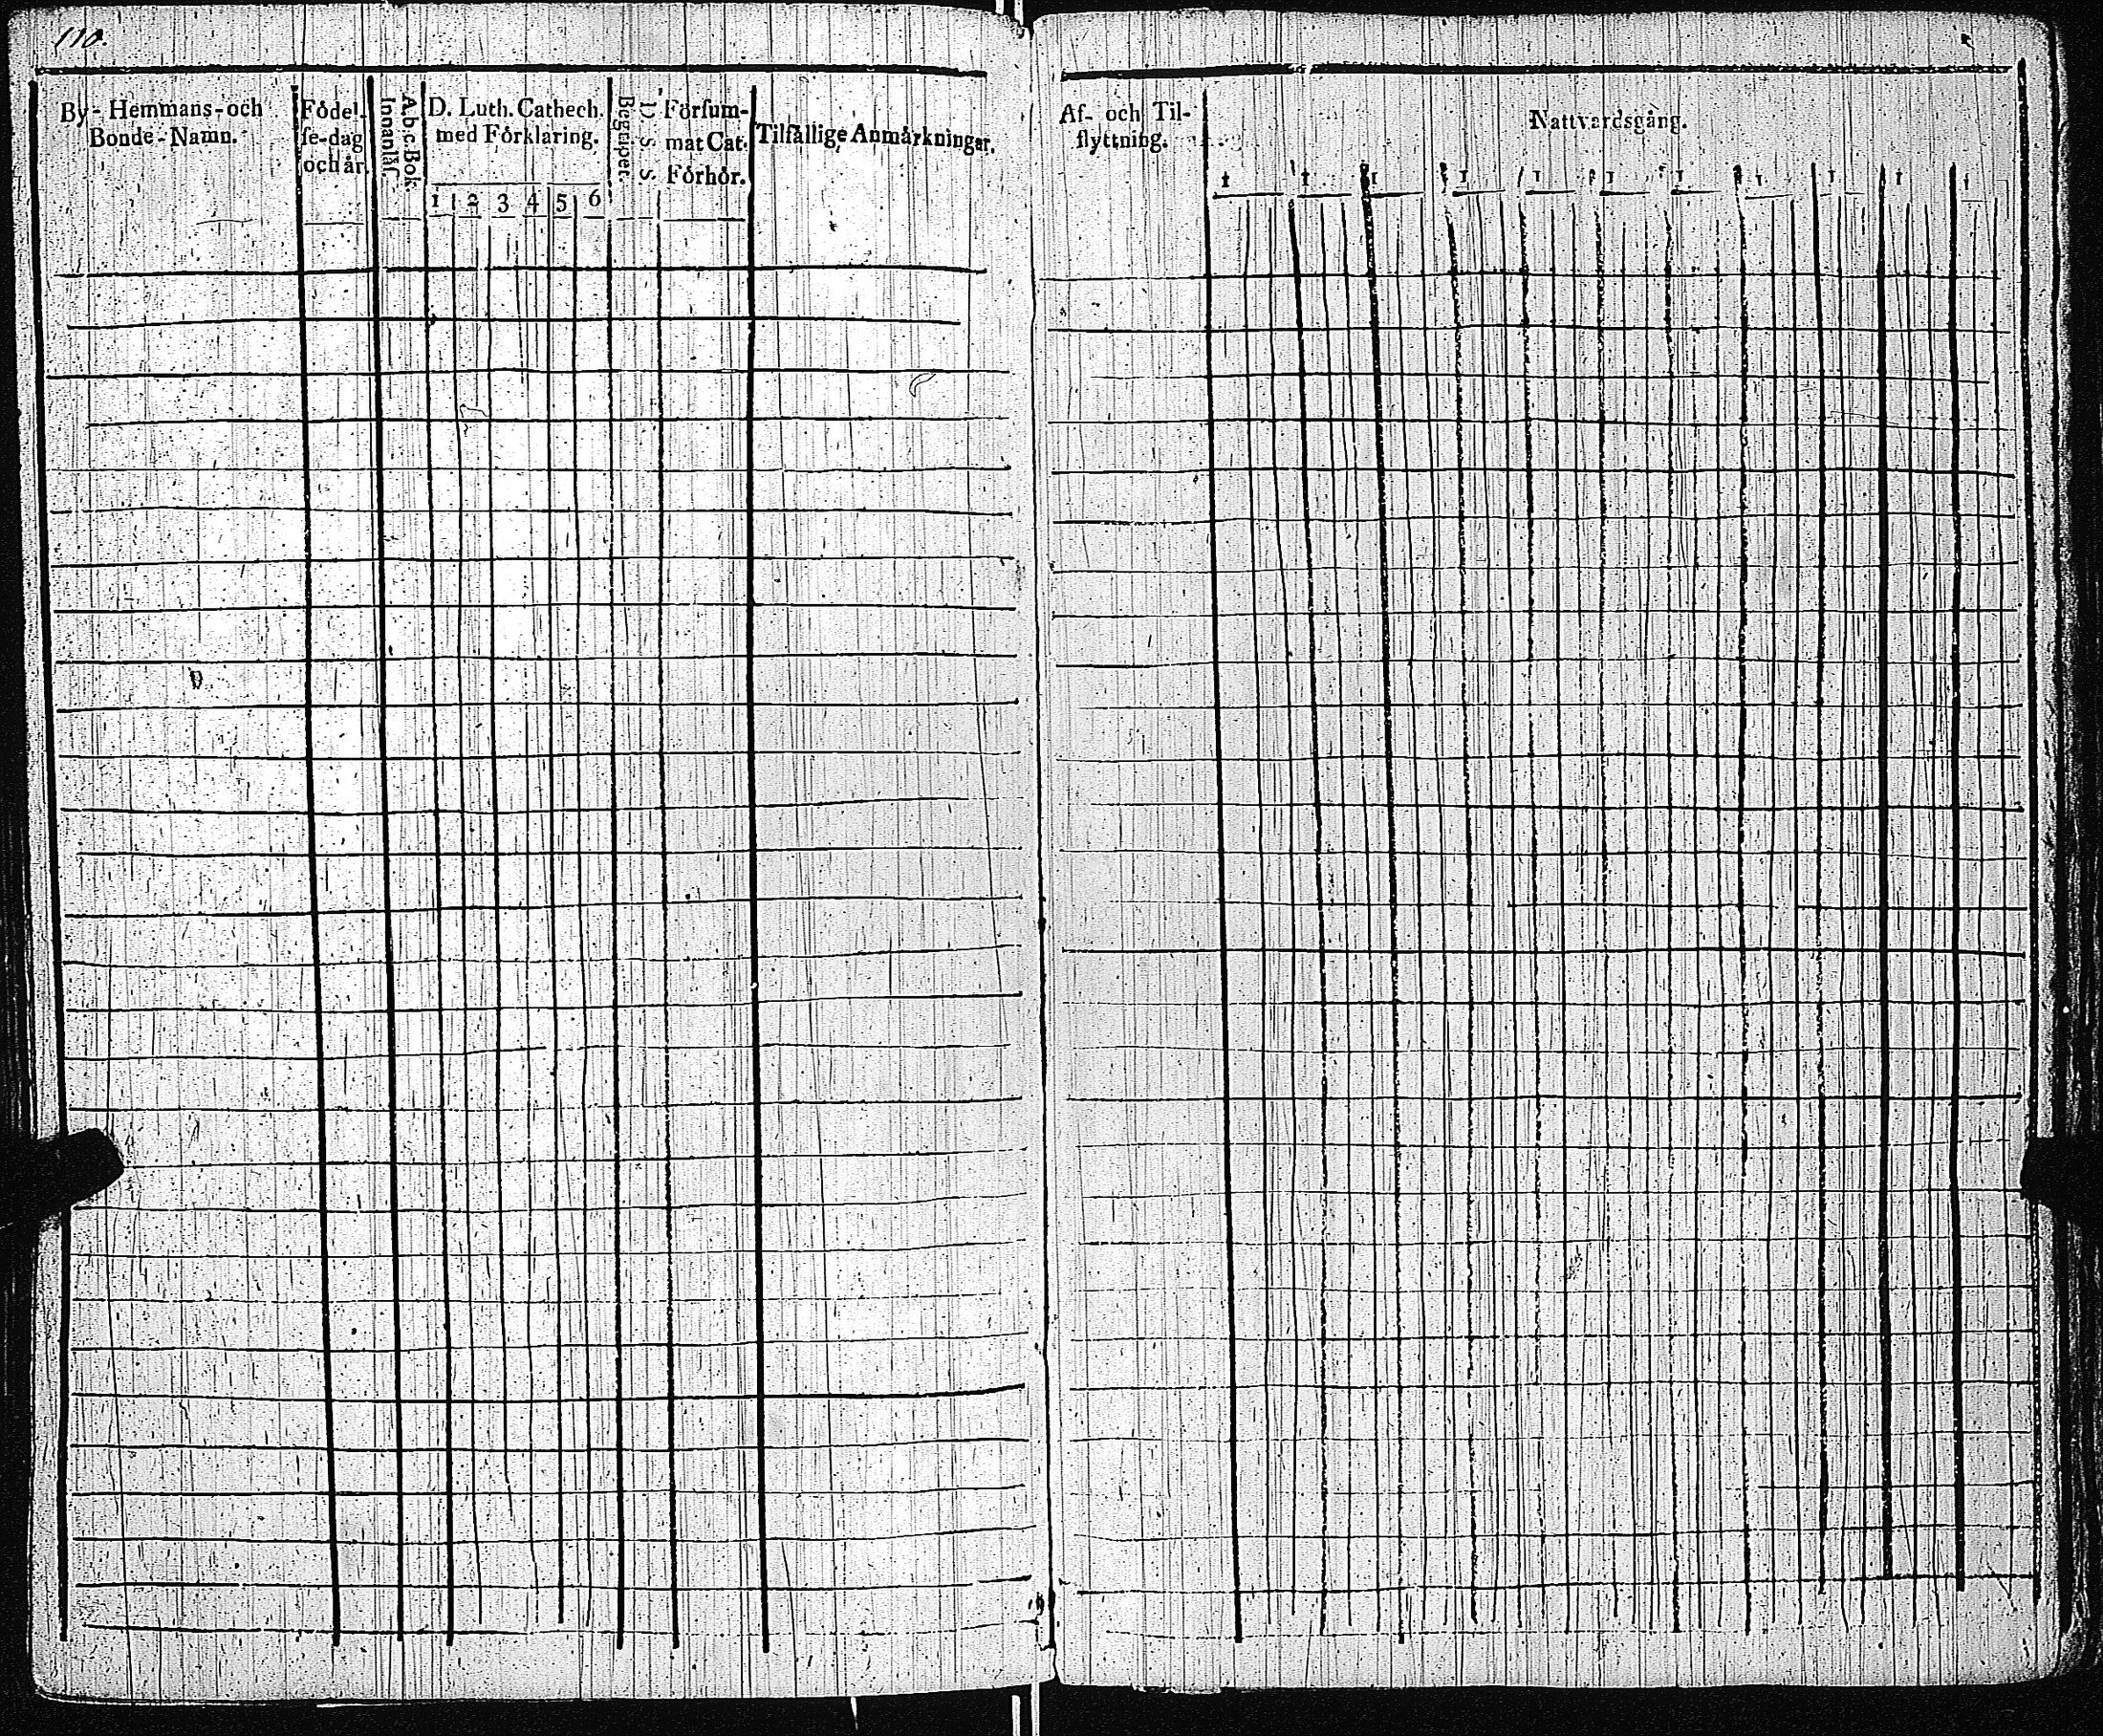 110.
By-Hemmans-och
Bonde-Namn.
Födel-
se-dag
och år.
Ab.c.Bok.
Innanläs.
D. Luth. Cathech.
med Förklaring.
1 2 3 4 5 6
Begriper.
D. S. S.
Försum-
mat Cat.
Förhör.
Tilfällige Anmärkningar.
Af- och Til-
flyttning.
Nattvardsgång.
1 1 1 1 1 1 1 1 1 1 1